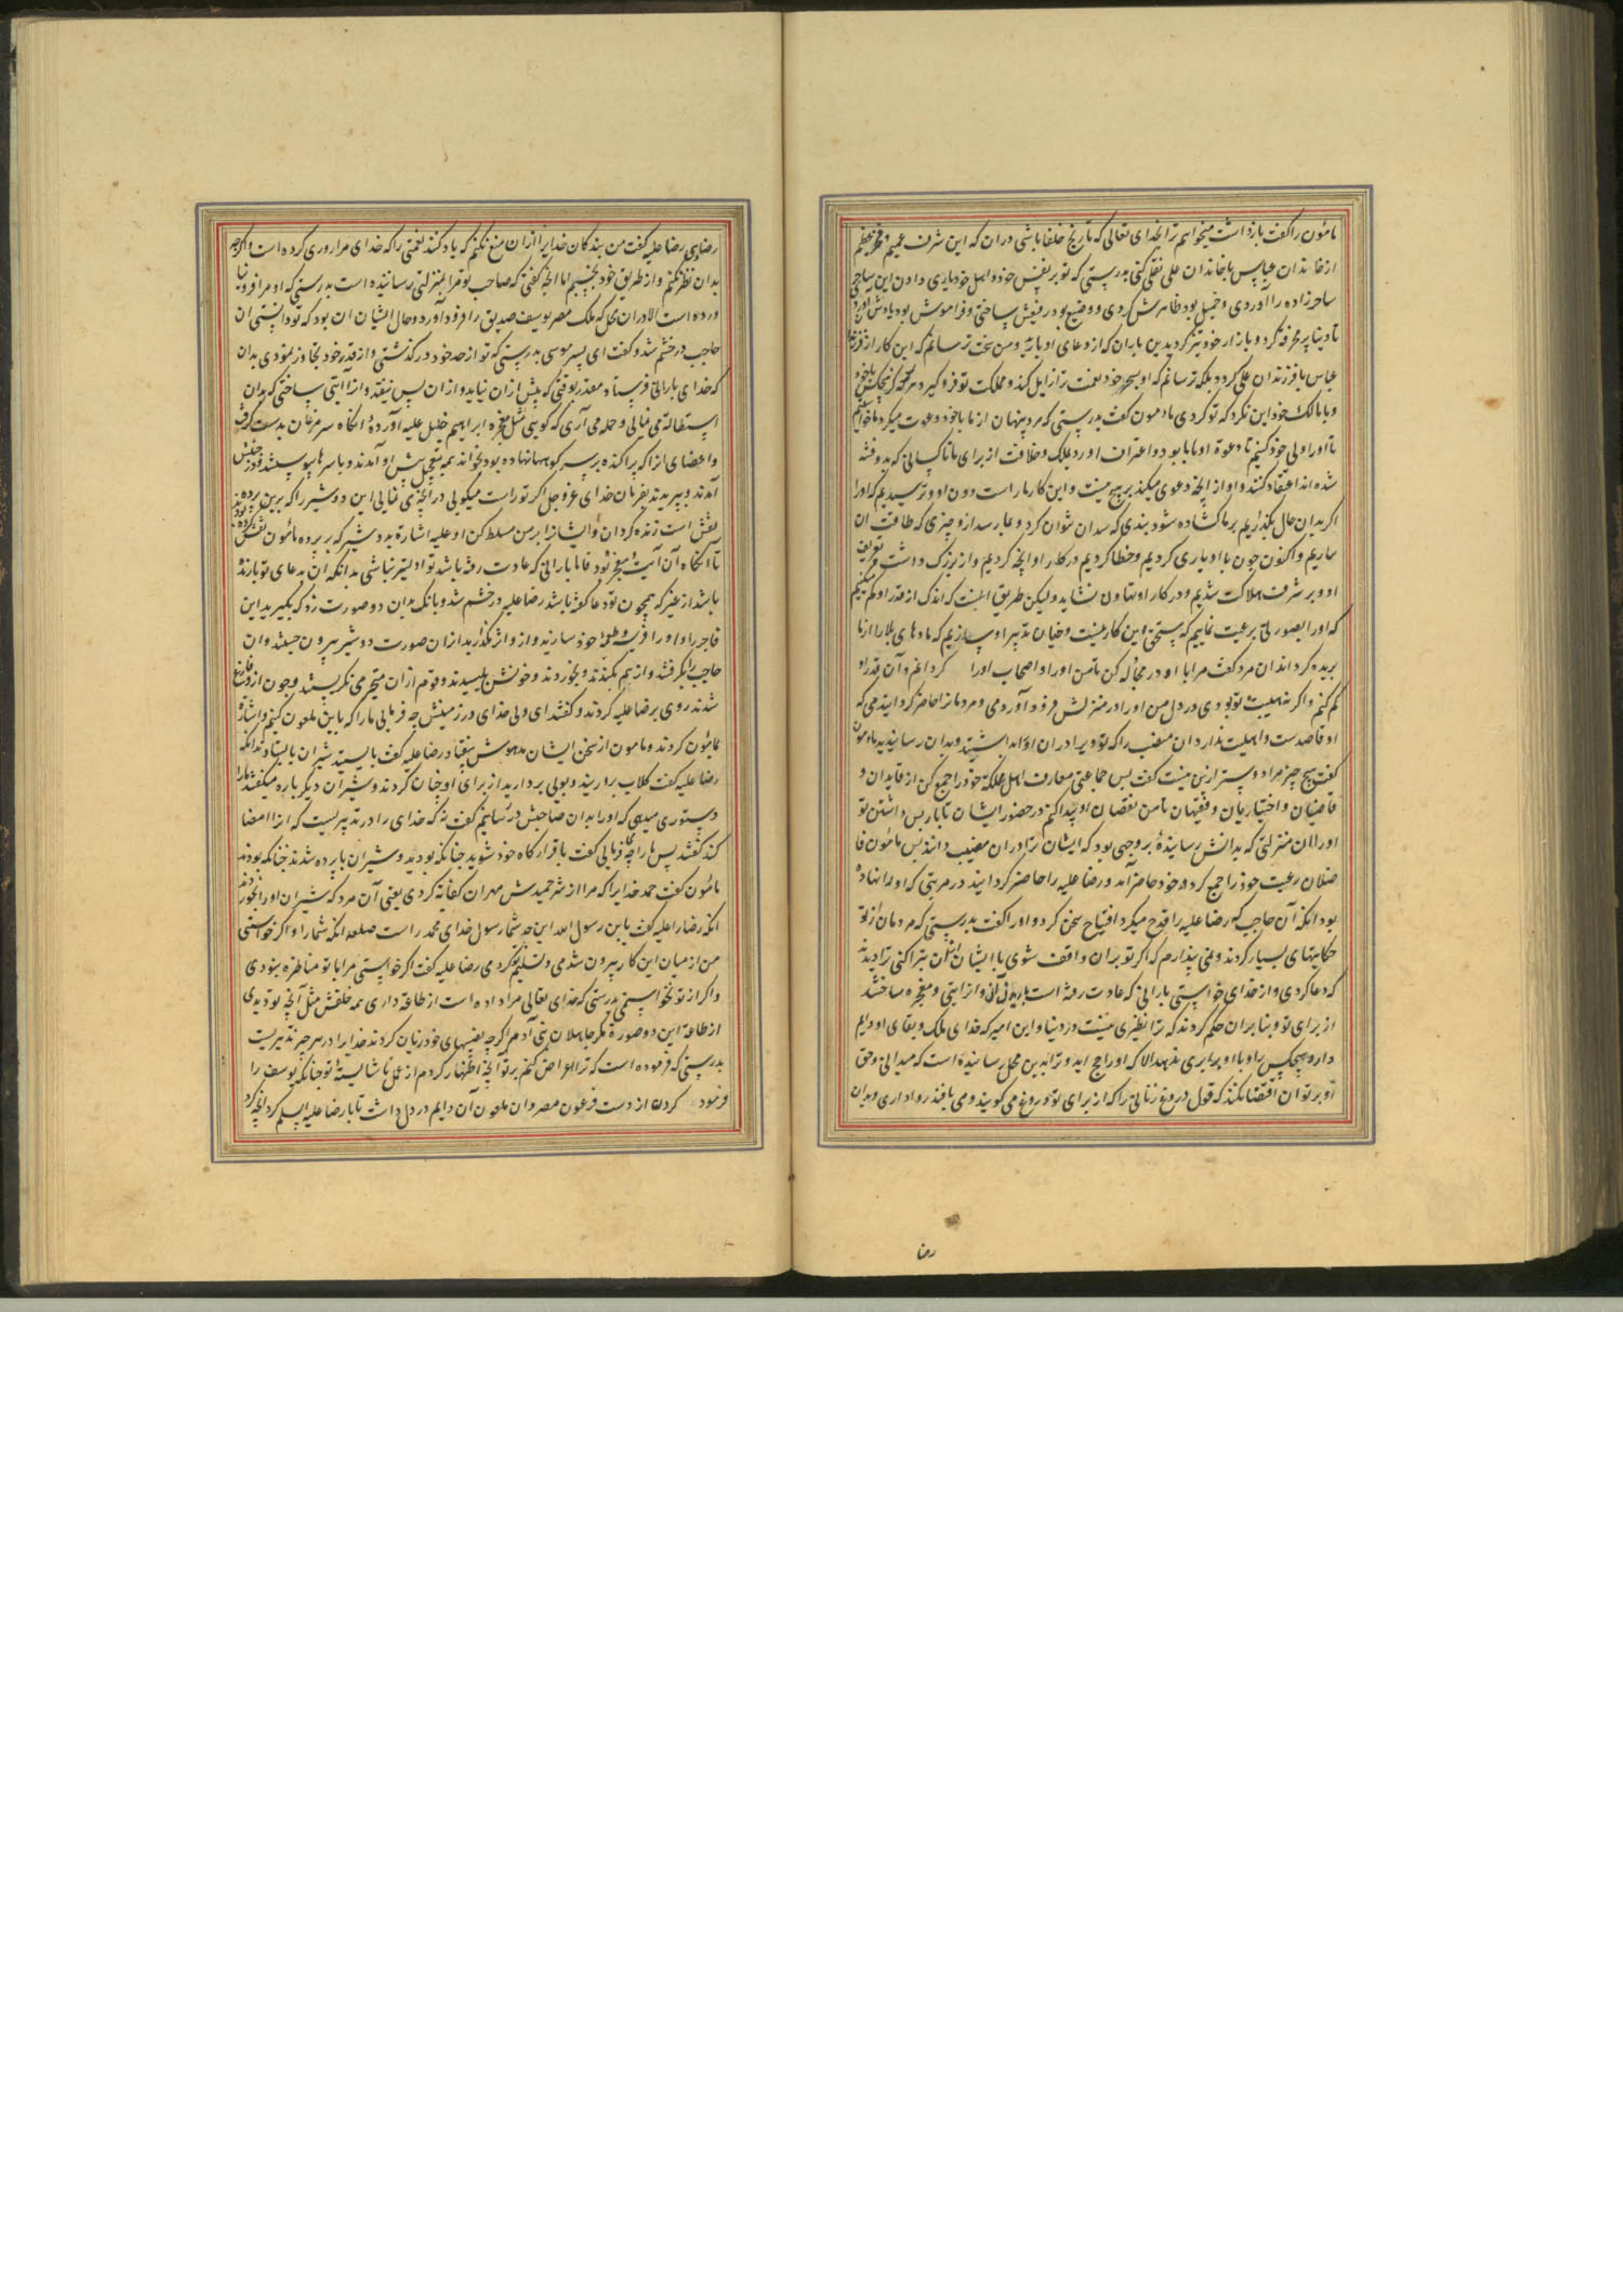 مامون را گفت بازداشت میخواهم ترا بخدای تعالی که تاریخ خلفا باشی دران که این شرف عمیم و فخر عظیم
از خاندان عباس با خاندان علی نقل کنی بدرستی که تو بر نفس خود و اهل خود یاری دادی این ساحر
ساحر زاده را آوردی و خمیل بود ظاهرش کردی و وضیع بود رفیعش ساختی و فراموش بود یادش آوردی
تا دنیا پر مخرقه کرد و بازار خود تیز کرد بدین باران که از دعای او بارید و من سخت ترسانم که این کار از فرزندان
عباس با فرزندان علی گردد بلکه ترسانم که او بسحر خود نعمت ترا زایل کند و مملکت تو فرو گیرد هرگز هیچکس با خود
و با مالک خود این نکرد که تو کردی مامون گفت بدرستی که مرد پنهان از ما با خود دعوت میکرد ما خواستیم
تا او را ولی خود کنیم تا دعوة او ما را بود و اعتراف اورد بملک و خلافت از برای ما تا کسانی که بدو فتنه
شده اند اعتقاد کنند و او از آنچه دعوی میکند بر هیچ نیست و این کار ما راست دون او و ترسیدیم که او را
اگر بدان حال بگذاریم بر ما گشاده شود بندی که سد آن نتوان کرد و بما رسد ازو چیزی که طاقت ان
نداریم و اکنون چون با او یاری کردیم و خطا کردیم در کار او آنچه کردیم و از بزرگ داشت و تعریف
او بر شرف هلاکت شدیم و در کار او تهاون نشاید و لیکن طریق آنست که اندک اندک از قدر او کم میکنیم
که او را بصورتی بر رعیت نماییم که مستحق این کار نیست و چنان تدبیر او بسازیم که ماده های بلا را از ما
بریده گرداند ان مرد گفت مرا با او در مجادله کن تا من او را و اصحاب او را گردانم و آن قدر او
کم کنم و اگر نه هیبت تو بودی در دل من او را در منزلش فرود آوردمی و مردمانرا حاضر گردانیدمی که
او قاصدست و اهلیت ندارد ان منصب را که تو ویرا دران
گفت هیچ چیز مرا دوستر ازین نیست گفت پس جماعتی معارف اهل مملکة خود را جمع کن از قایدان و
قاضیان و اختیاریان و فقیهان تا من نقصان او پیدا کنم در حضور ایشان تا باز پس داشتن تو
او را ازان منزلتی که بدانش رسانیدۀ بر وجهی بود که ایشان ترا دران مصیب دانند پس مامون فا
ضلان رعیت خود را جمع کرد و خود حاضر آمد و رضا علیه را حاضر گردانید در مرتبتی که او را نهاده
بود آنگه آن حاجب که رضا علیه را قدح میکرد افتتاح سخن کرد و او را گفت بدرستی که مردمان از تو
حکایتهای بسیار کردند و می پندارم که اگر تو بران واقف شوی با ایشان ازان تبرا کنی ترا دیدند
که دعا کردی و از خدای خواستی بارانی که عادت رفته است باریدن آن و ازان آیتی و معجزه ساختند
از برای تو و بنا بران حکم کردند که ترا نظیری نیست در دنیا و این امیر که خدای ملک و بقای او دایم
داراد هیچکس را با او برابری ننهد الا که او راجح آید و ترا بدین محل رسانیده است که میدانی و حق
او بر تو ان اقتضا نکند که قول دروغ زنانی را که از برای تو دروغ می گویند و می بافند روا داری و بدان
رضا
رضا دهی رضا علیه گفت من بندگان خدایرا ازان منع نکنم که یاد کنند نعمتی را که خدای مرا روزی کرده است و اگرچه
بدان نظر نکنم و از طریق خود نجنبم اما آنچه گفتی که صاحب تو مرا بمنزلتی رسانیده است بدرستی که او مرا فرو نیا
ورده است الا دران محل که ملک مصر یوسف صدیق را فرود آورد و حال ایشان ان بود که تو دانستی ان
حاجب در خشم شد و گفت ای پسر موسی بدرستی که تو از حد خود در گذشتی و از قدر خود تجاوز نمودی بدان
که خدای بارانی فرستاد مقدر بوقتی که پیش ازان نیاید و ازان پس نیفتد و انرا آیتی ساختی که بدان
استطالة می نمائی و حمله می آری که گویی مثل معجزه ابراهیم خلیل علیه آوردۀ انگاه سر مرغان بدست گرفت
و اعضای انرا که پراکنده بر سر کوهها نهاده بود بخواند همه بتعجیل پیش او آمدند و با سرها پیوستند و در جنبش
آمدند و بپریدند بفرمان خدای عز و جل اگر تو راست میگویی در آنچه می نمایی این دو شیر را که برین پرده
نقش است زنده گردان و ایشانرا بر من مسلط کن او علیه اشارة بدو شیر که بر پرده مامون نقش کرده بود
تا انگاه آن آیت و معجز تو بود فاما بارانی که عادت رفته باشد تو اولیتر نباشی بدانکه ان بدعای تو بارنده
باشد از غیر که همچون تو دعا کرده باشد رضا علیه در خشم شد و بانگ بدان دو صورت زد که بگیرید این
فاجر را و او را فریسه و طعمه خود سازید و ازو اثر مگذارید ازان صورت دو شیر بیرون جستند و ان
حاجب را بگرفتند و از هم بکندند و بخوردند و خونش بلیسیدند و قوم ازان متحیر می نگریستند و چون ازو فارغ
شدند روی برضا علیه کردند و گفتند ای ولی خدای در زمینش چه فرمایی ما را که با این ملعون کنیم و اشارة
بمامون کردند و مامون از سخن ایشان مدهوش بیفتاد رضا علیه گفت بایستید شیران بایستادند آنگه
رضا علیه گفت گلاب برو زنید و بویی بر دارید از برای او چنان کردند و شیران دیگر باره میگفتند ما را
دستوری میدهی که او را بدان صاحبش در رسانیم گفت نه که خدای را درو تدبیریست که انرا امضا
کند گفتند پس ما را چه فرمایی گفت با قرارگاه خود شوید چنانکه بودید و شیران با پرده شدند چنانکه بودند
مامون گفت حمد خدایرا که مرا از شر حمید بن مهران کفایة کردی یعنی آن مرد که شیران او را بخوردند
انگه رضا را علیه گفت یا بن رسول الله این حد شما رسول خدای محمد راست صلعم انگه شما را و اگر خواستی
من از میان این کار بیرون شدمی و تسلیم تو کردمی رضا علیه گفت اگر خواستمی مرا با تو مناظره نبودی
و اگر از تو نخواستمی بدرستی که خدای تعالی مرا داده است از طاعة داری همه خلقش مثل آنچه تو دیدی
از طاعة این دو صورة مگر جاهلان بنی آدم اگر چه نصیبهای خود زیان کردند خدایرا در هر چیز تدبیریست
بدرستی که فرموده است که ترا اعتراض نکنم بر تو آنچه اظهار کردم از عمل ناشایستۀ تو چنانکه یوسف را
فرمود کردن از دست فرعون مصر و ان ملعون آن دایم در دل داشت تا با رضا علیه السلم کرد آنچه کرد